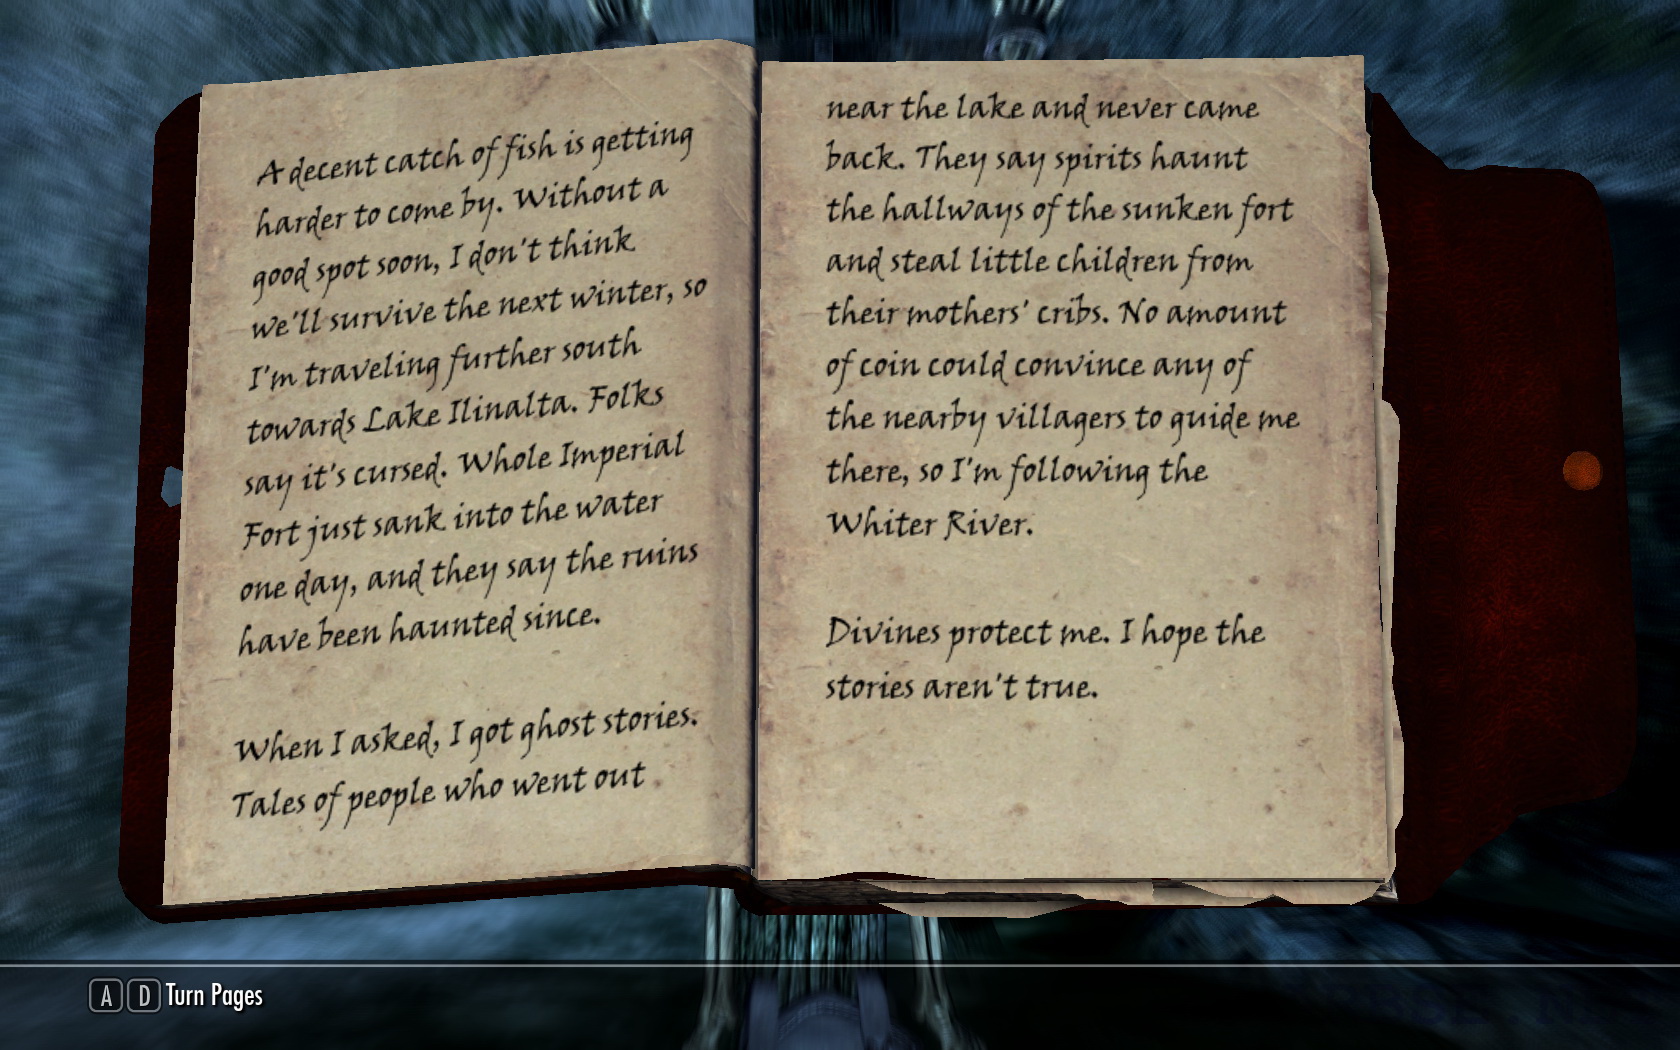 A decent catch of fish is getting
harder to come by. Without a
good spot soon, I don't think
we'll survive the next winter, so
I'm traveling further south
towards Lake Ilinalta. Folks
say it's cursed. Whole Imperial
Fort just sank into the water
one day, and they say the ruins
have been haunted since.
When I asked, I got ghost stories.
Tales of people who went out
near the lake and never came
back. They say spirits haunt
the hallways of the sunken fort
and steal little children from
their mothers' cribs. No amount
of coin could convince any of
the nearby villagers to guide me
there, so I'm following the
Whiter River.
Divines protect me. I hope the
stories aren't true.
A D Turn Pages